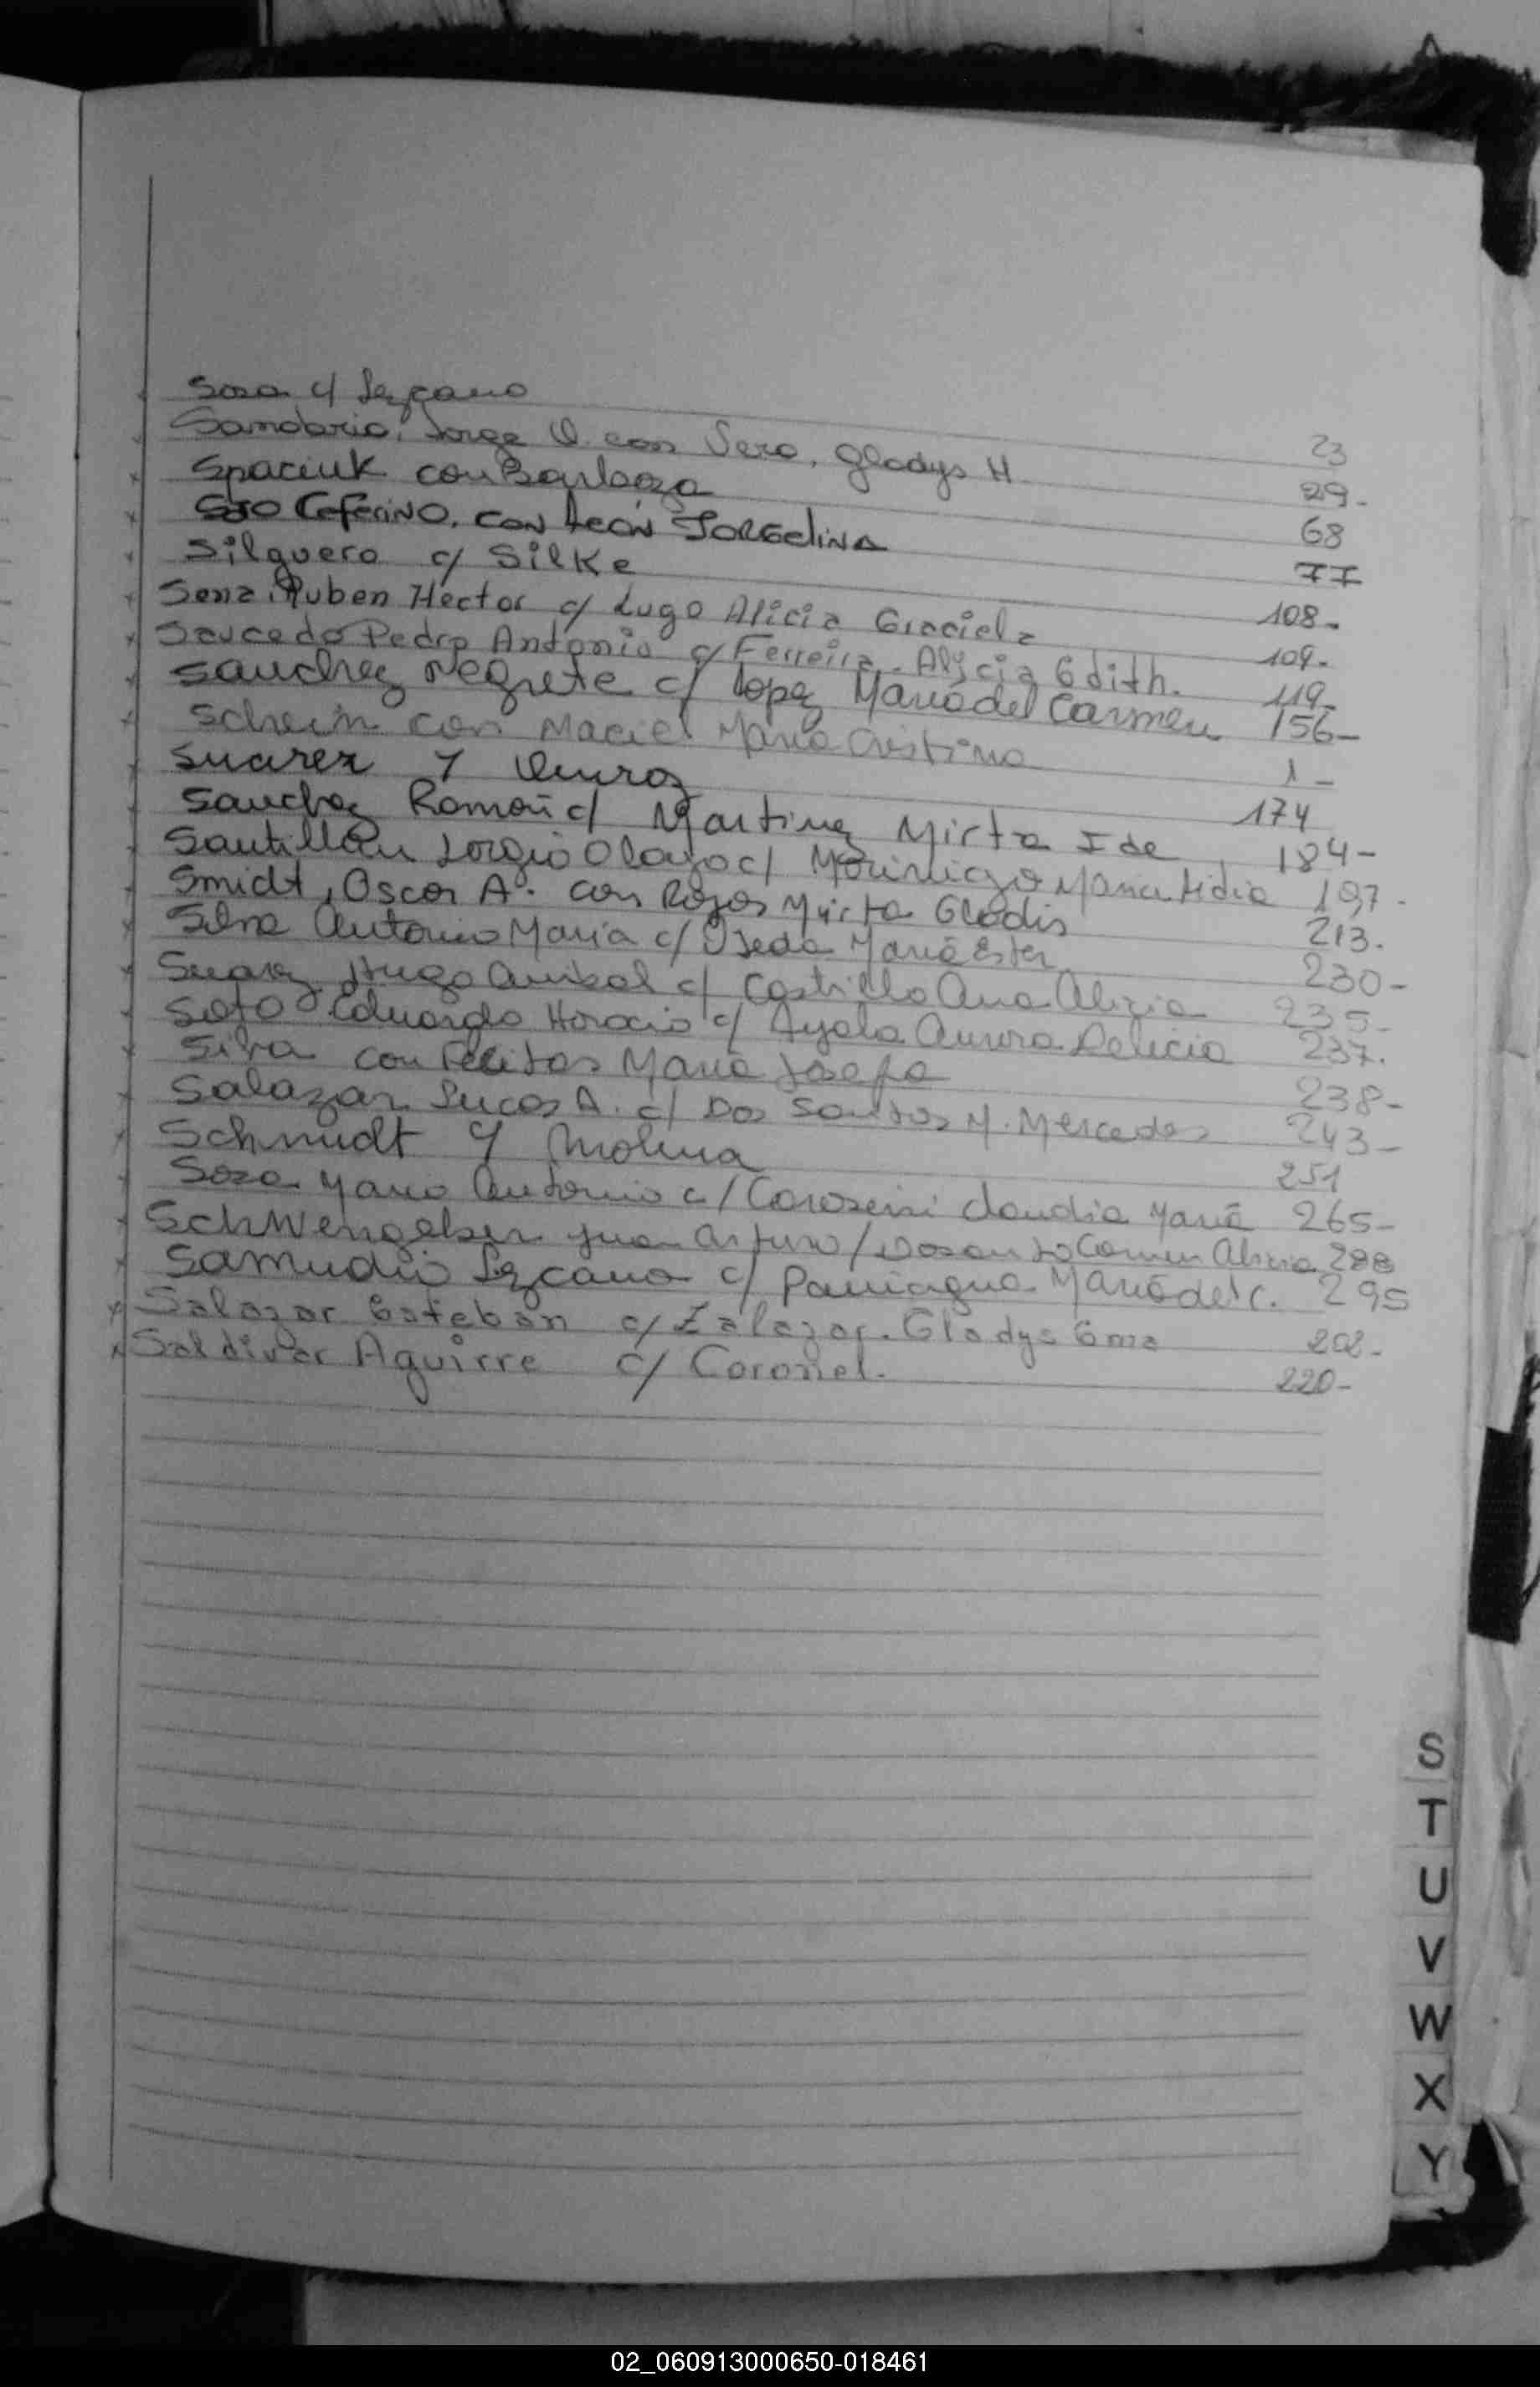 Sosa c/ Lezcano 23
Samdario, Jorge O. con Vera, Gladys H 29-
Spaciuk con 68
Sto Ceferino, con León Jorgelina 77
Silguero c/ Silke 108-
Sena Ruben Hector c/ Lugo Alicia Graciela 109-
Saucedo Pedro Antonio c/ Ferreira - Alicia Edith. 119-
Sanchez Negrete c/ Lopez Maria del Carmen 156-
Schein con Maciel Maria Cristina 1-
Suarez y 174
Sanchez Ramón c/ Martinez Mirta Ide 184-
Santillan Sergio Olayo c/ Morinigo Maria Lidia 197-
Smidt, Oscar A. con Rojas Mirta Gladis 213.
Silva Antonio Maria c/ Ojeda Maria Ester 230-
Suarez Hugo Anibal c/ Castillo Ana Alicia 235-
Soto Eduardo Horacio c/ Ayala Aurora Delicia 237.
Silva con Maria Josefa 238-
Salazar Lucas A. c/ Dos Santos M. Mercedes 243-
Schmidt y Molina 251
Sosa Mario Antonio c/ Claudia Maria 265-
Schwengelber Juan Arturo / Dosanto Carmen Alicia 288
Samudio Lezcano c/ Paniagua Maria del C. 295
Salazar Esteban c/ Zalazar - Gladys Ema 202-
Saldivar Aguirre c/ Coronel. 220-
S
T
U
V
W
X
Y
02_060913000650-018461